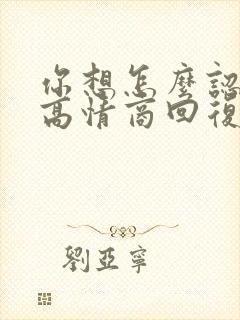 你想怎麼認
高情商回復
劉亞寧